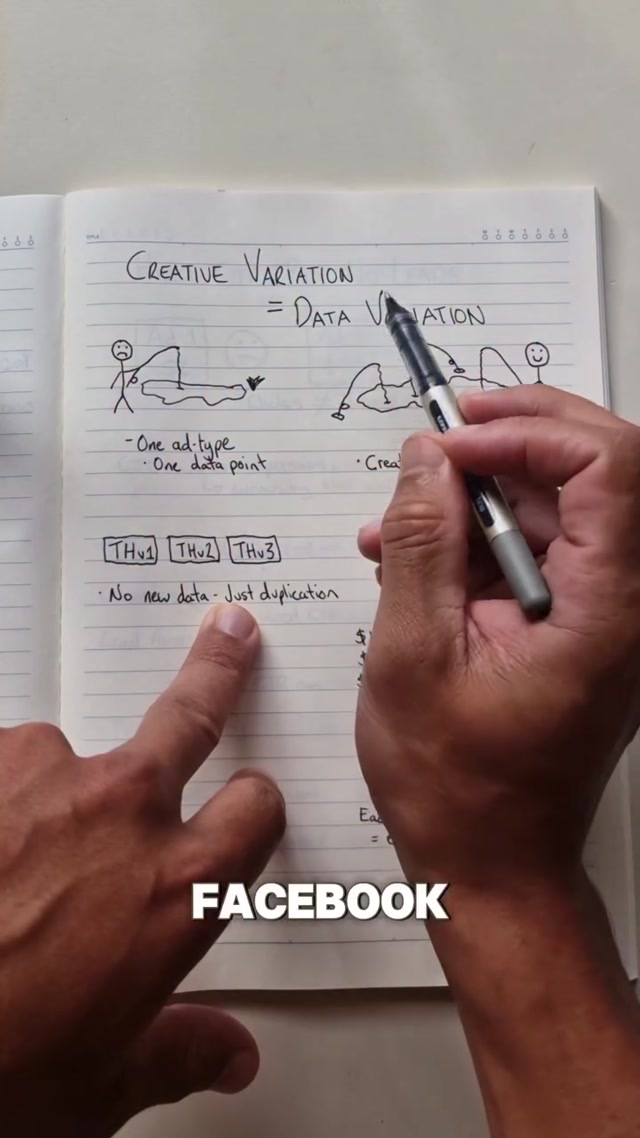 CREATIVE VARIATION
= DATA VARIATION
- One ad-type
· One data point
THv1 THv2 THv3
· No new data - Just duplication
FACEBOOK